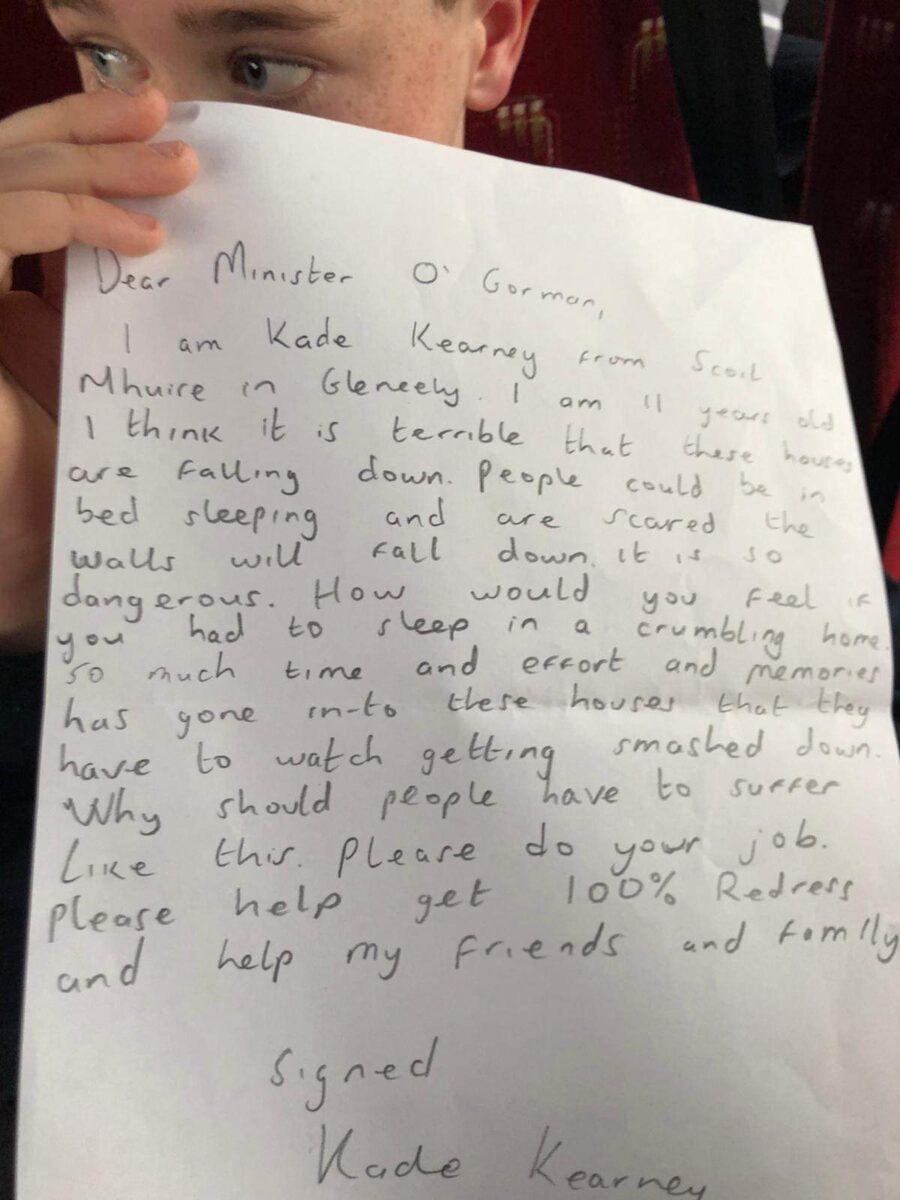 Dear Minister O' Gorman,
I am Kade Kearney from Scoil
Mhuire in Gleneely. I am 11 years old.
I think it is terrible that these houses
are falling down. People could be in
bed sleeping and are scared the
walls will fall down. it is so
dangerous. How would you feel if
you had to sleep in a crumbling home.
so much time and effort and memories
has gone in-to these houses that they
have to watch getting smashed down.
Why should people have to suffer
Like this. Please do your job.
please help get 100% Redress
and help my friends and family
signed
Kade Kearney